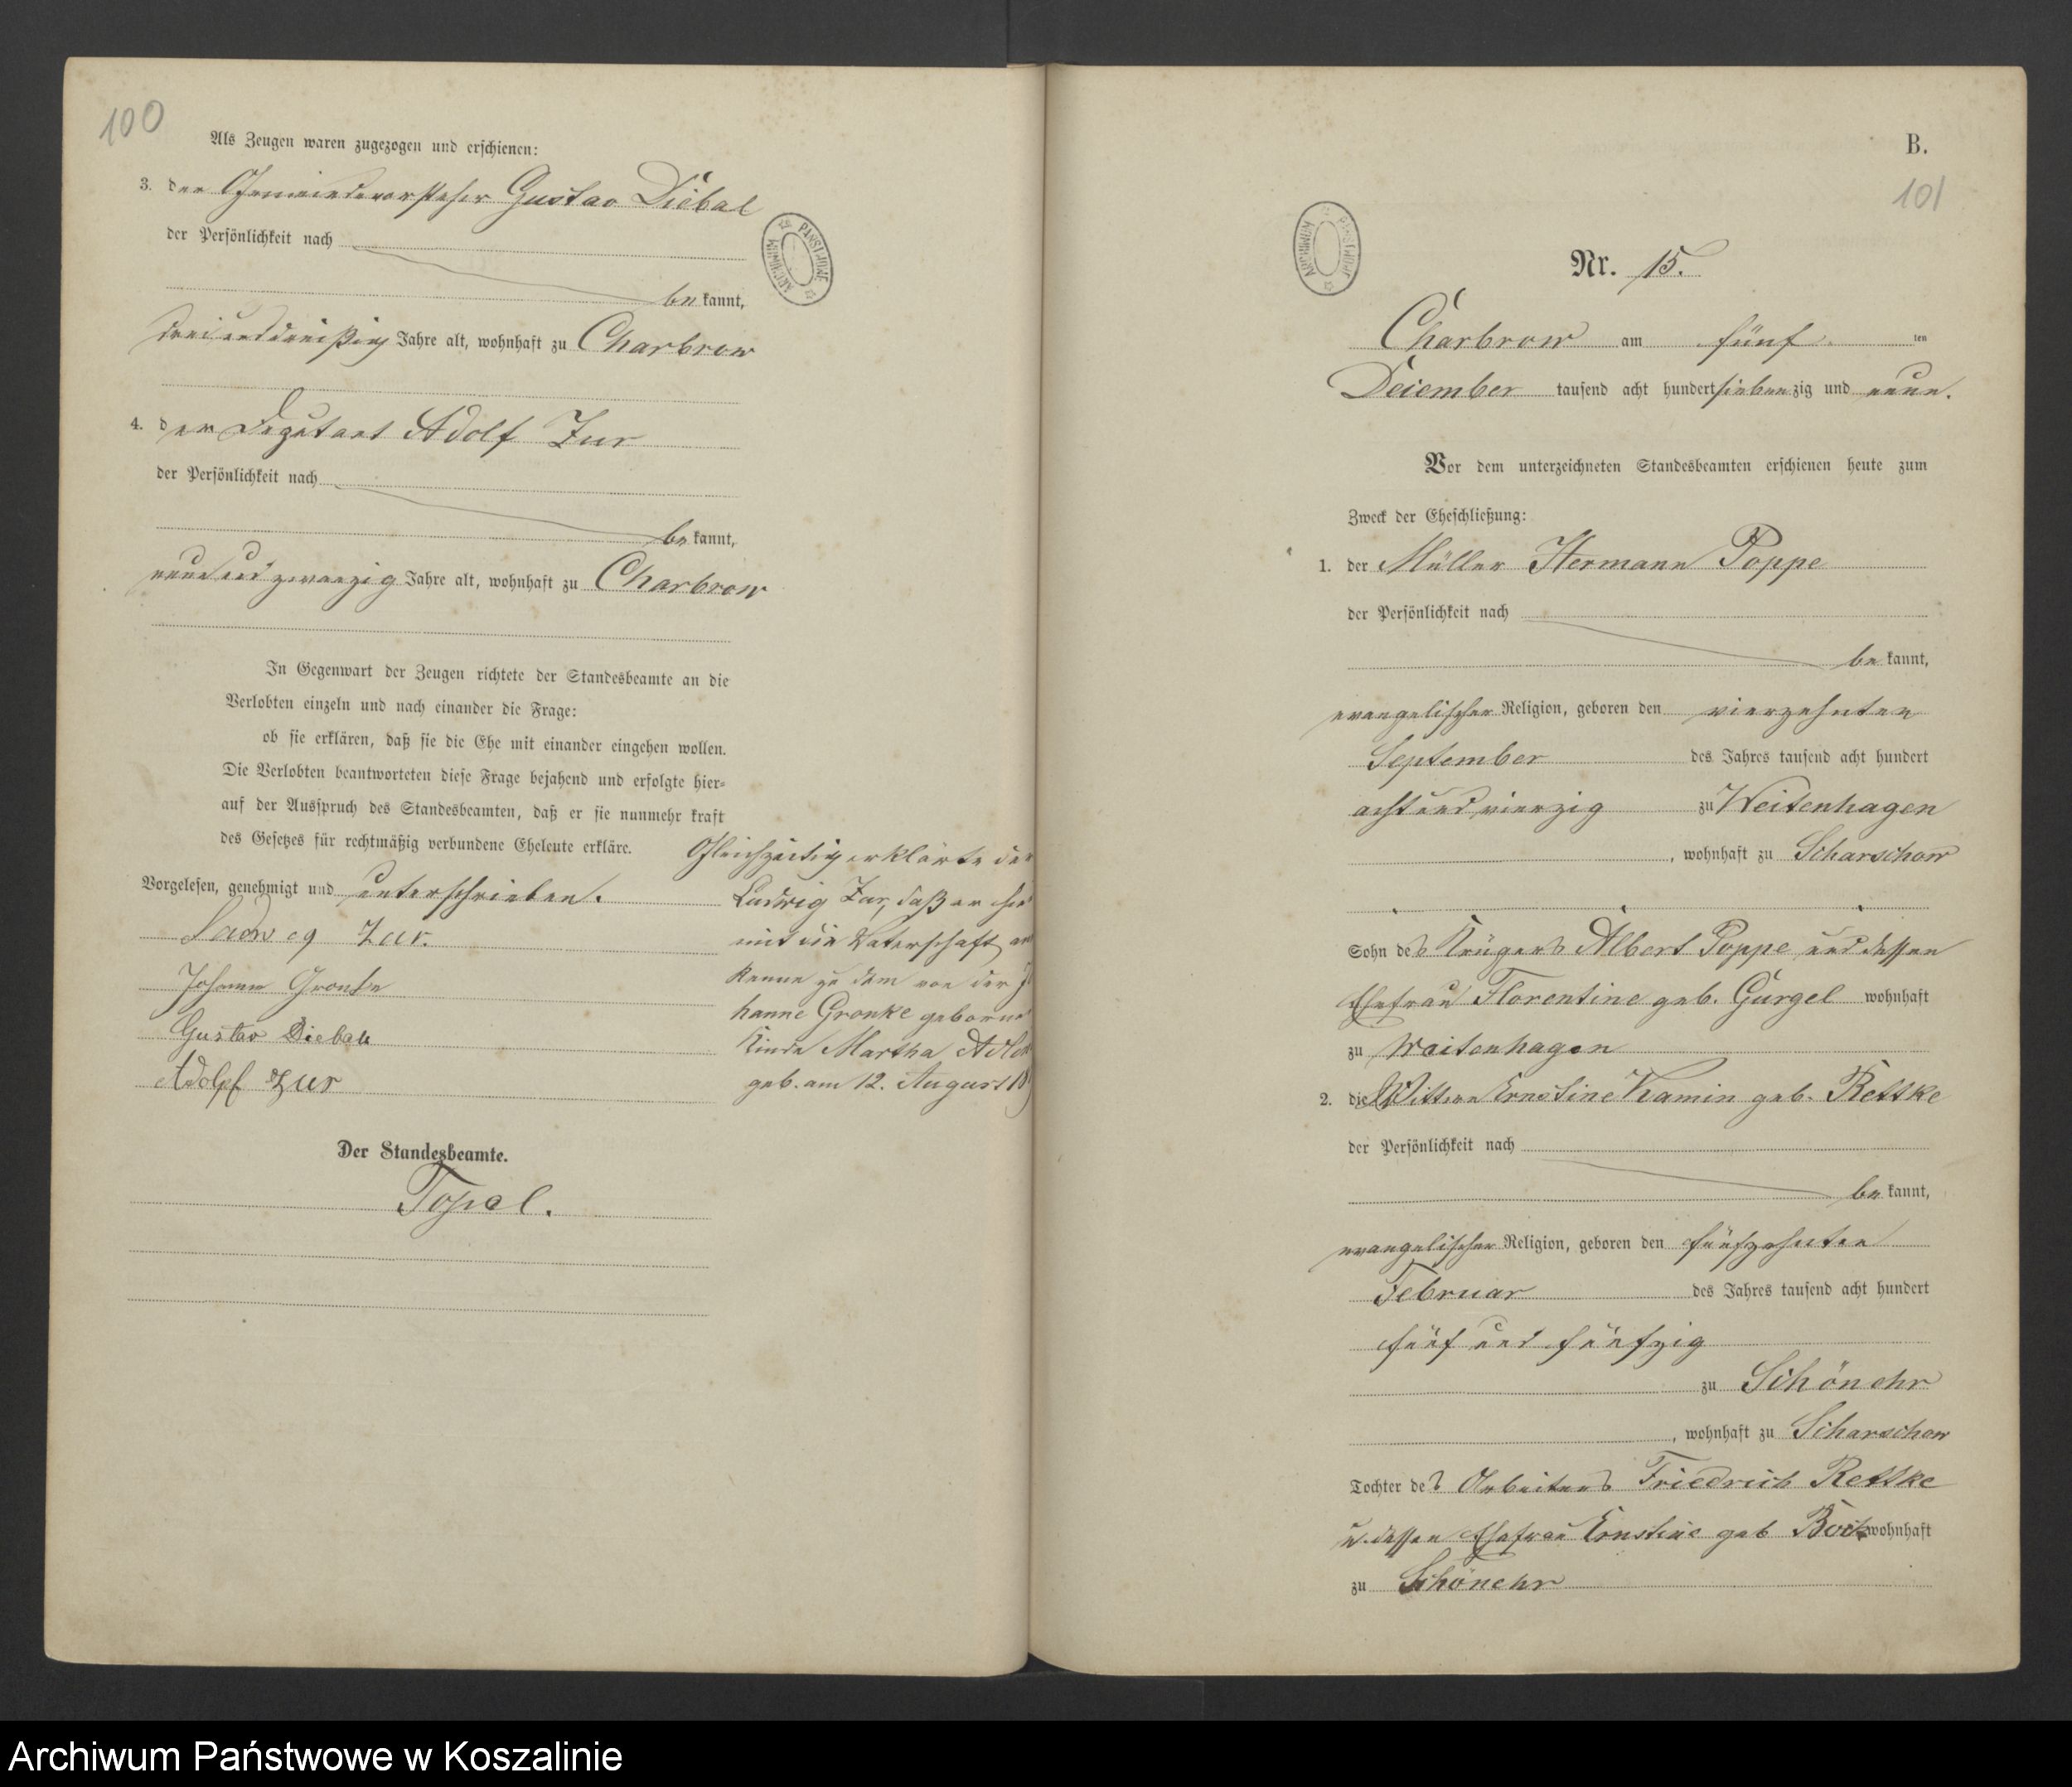 100
Als Zeugen waren zugezogen und erschienen:
3. der Gemeindevorsteher Gustav Diebal
der Persönlichkeit nach
be kannt,
dreiunddreißig Jahre alt, wohnhaft zu Charbrow
4. der Deputant Adolf Zur
der Persönlichkeit nach
be kannt,
neunundzwanzig Jahre alt, wohnhaft zu Charbrow
In Gegenwart der Zeugen richtete der Standesbeamte an die
Verlobten einzeln und nach einander die Frage:
ob sie erklären, daß sie die Ehe mit einander eingehen wollen.
Die Verlobten beantworteten diese Frage bejahend und erfolgte hier-
auf der Ausspruch des Standesbeamten, daß er sie nunmehr kraft
des Gesetzes für rechtmäßig verbundene Eheleute erkläre.
Vorgelesen, genehmigt und unterschrieben.
Ludwig Zur.
Johanne Gronke
Gustav Diebal
Adolf Zur
Gleichzeitig erklärte der
Ludwig Zur, daß er hier
mit die Vaterschaft an
kenne zu dem von der Jo
hanne Gronke geborne
Kinde Martha
geb. am 12. August 18
Der Standesbeamte.
Topel.
ARCHIWUM PAŃSTWOWE
B.
101
ARCHIWUM PAŃSTWOWE
Nr. 15.
Charbrow am fünf ten
Dezember tausend acht hundert siebenzig und neun.
Vor dem unterzeichneten Standesbeamten erschienen heute zum
Zweck der Eheschließung:
1. der Müller Hermann Poppe
der Persönlichkeit nach
be kannt,
evangelischer Religion, geboren den vierzehnten
September des Jahres tausend acht hundert
achtundvierzig zu Weitenhagen
, wohnhaft zu Scharschow
Sohn des Krügers Albert Poppe und dessen
Ehefrau Florentine geb. Gurgel wohnhaft
zu Weitenhagen
2. die Wittwe Ernestine Kamin geb. Rettke
der Persönlichkeit nach
be kannt,
evangelischer Religion, geboren den fünfzehnten
Februar des Jahres tausend acht hundert
fünf und fünfzig
zu Schönehr
, wohnhaft zu Scharschow
Tochter des Arbeiters Friedrich Rettke
u. dessen Ehefrau Ernstine geb Bock wohnhaft
zu Schönehr
Archiwum Państwowe w Koszalinie